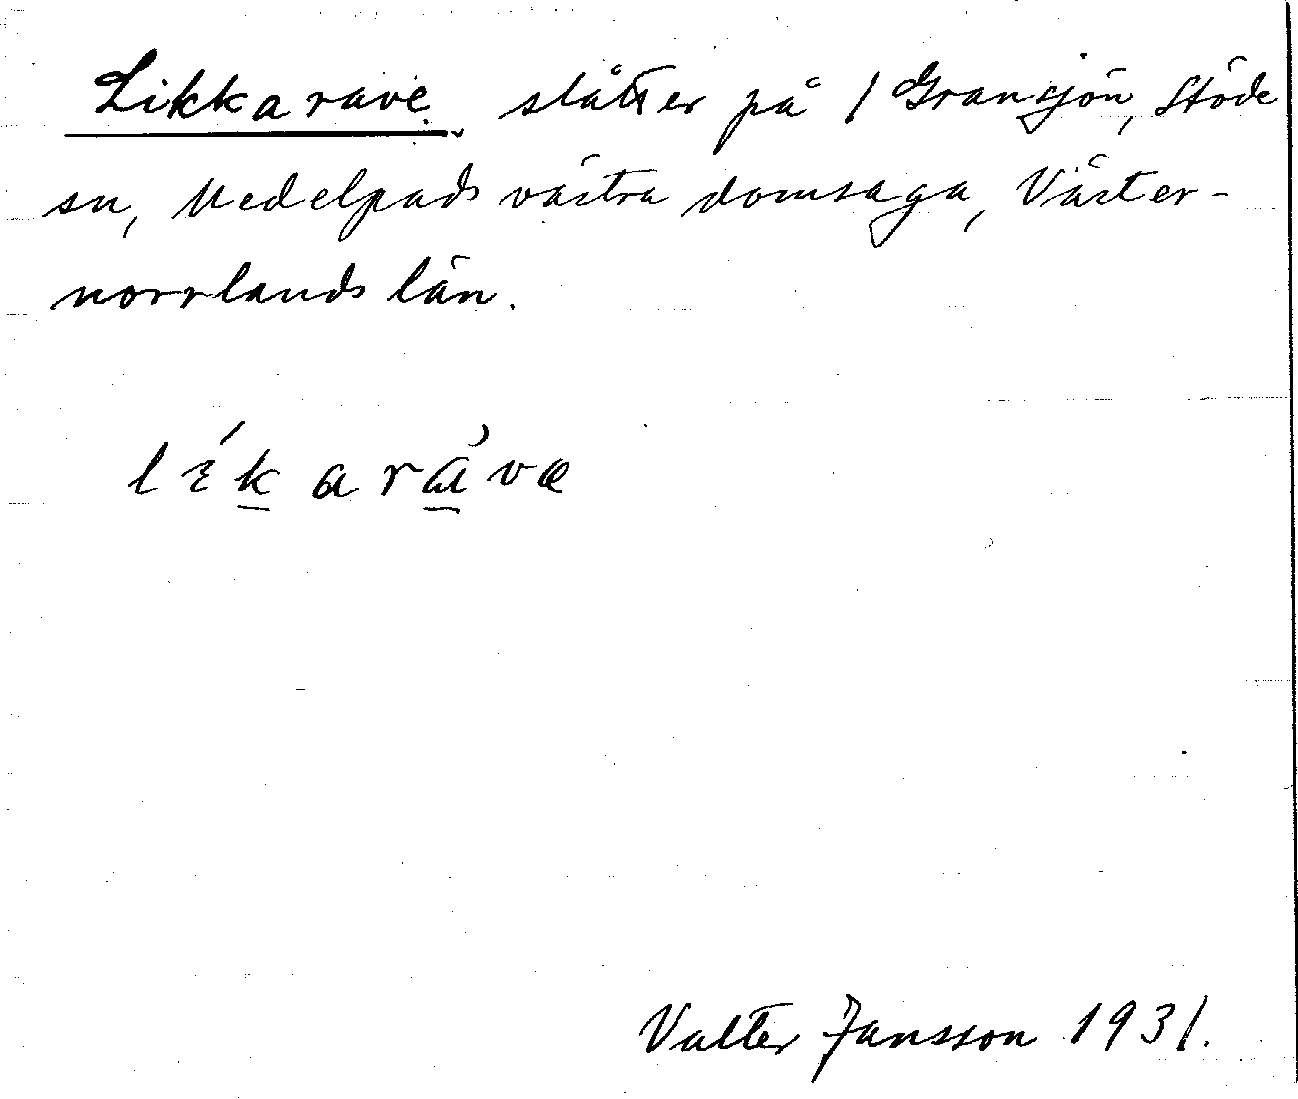 Likkarave slåtter på 1 Gransjön, Stöde
sn, Medelpads västra domsaga, Väster-
norrlands län.
líkaràvæ
Valter Jansson 1931.